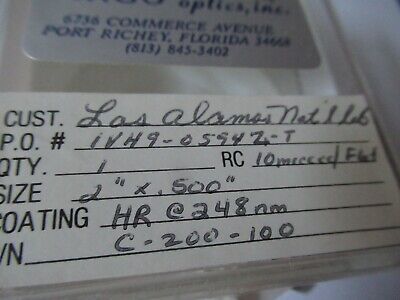 optics, inc.
6736 COMMERCE AVENUE
PORT RICHEY, FLORIDA 34668
(813) 845-3402
CUST. Las Alamos Nat'l Lab
P.O. # 1VH9-0594Z-T
QTY. 1 RC 10mcccc/Flat
SIZE 2" x .500"
COATING HR @ 248nm
C-200-100